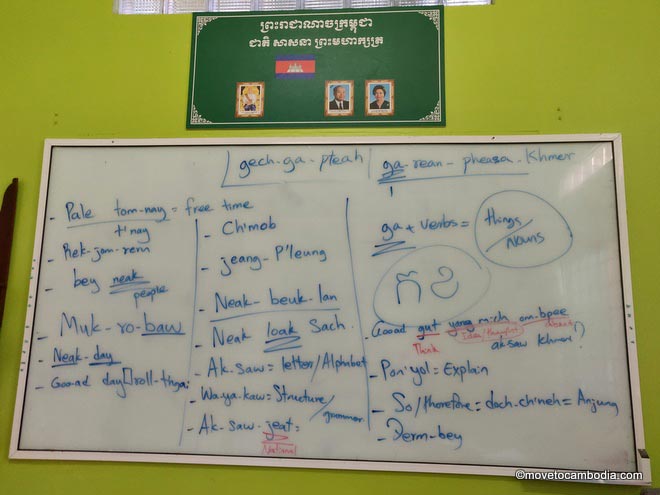 ព្រះរាជាណាចក្រកម្ពុជា
ជាតិ សាសនា ព្រះមហាក្សត្រ
gech-ga-pteah
ga-rean-pheasa-Khmer
- Pale tom-nay = free time
t'nay
- Rek-jom-rern
- bey neak
people
- Muk-ro-baw
- Neak-day
- Goo-ad day roll-thgai
- Ch'mob
- jeang-P'leung
- Neak-beuk-lan
- Neak loak Sach.
- Ak-saw = letter/Alphabet
- Wa-ya-kaw = Structure/grammer
- Ak-saw-jeat =
National
ga + verbs = things/Nouns
ក ខ
- Gooad gut yang mich om-bpee
Think Idea/thoughts About
ak-saw Khmer?
- Pon'yol = Explain
- So/therefore = doch-ch'neh = Anjung
- Derm-bey
©movetocambodia.com